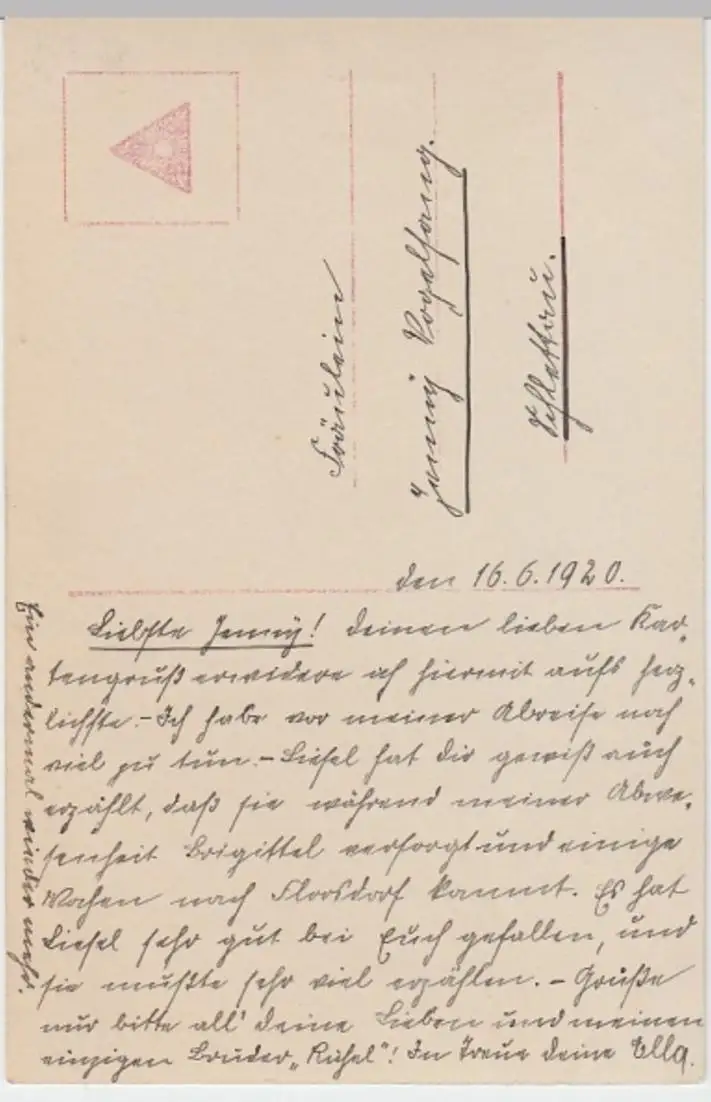 Fräulein
Jenny Vogelsang.
Schlettau.
den 16.6.1920.
Liebste Jenny! Deinen lieben Kar-
tengruß erwidere ich hiermit aufs herz-
lichste. - Ich habe vor meiner Abreise noch
viel zu tun. - Liesel hat dir gewiß auch
erzählt, daß sie während meiner Abwe-
senheit Brigittel versorgt und einige
Wochen nach Floosdorf kommt. Es hat
Liesel sehr gut bei Euch gefallen, und
sie mußte sehr viel erzählen. - Grüße
nur bitte all' deine Lieben und meinen
einzigen Bruder „Rüsel"! In Treue deine Ella.
Ein andermal wieder mehr.